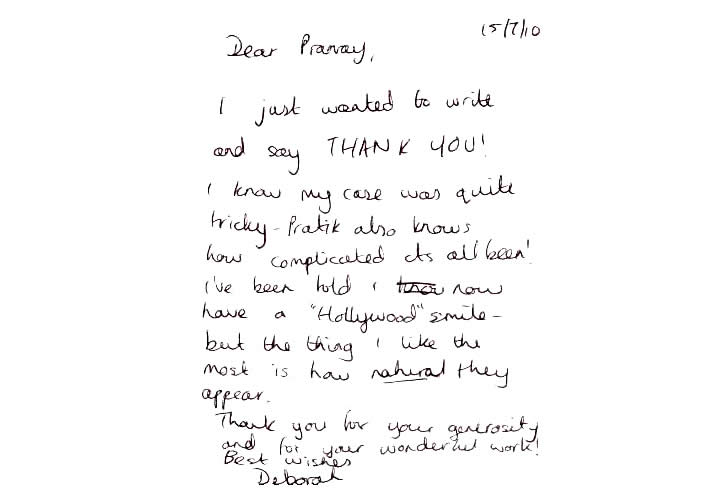 15/7/10
Dear Pranay,
I just wanted to write
and say THANK YOU!
I know my case was quite
tricky - Pratik also knows
how complicated its all been!
I've been told I now
have a "Hollywood" smile -
but the thing I like the
most is how natural they
appear.
Thank you for your generosity
and for your wonderful work!
Best wishes
Deborah